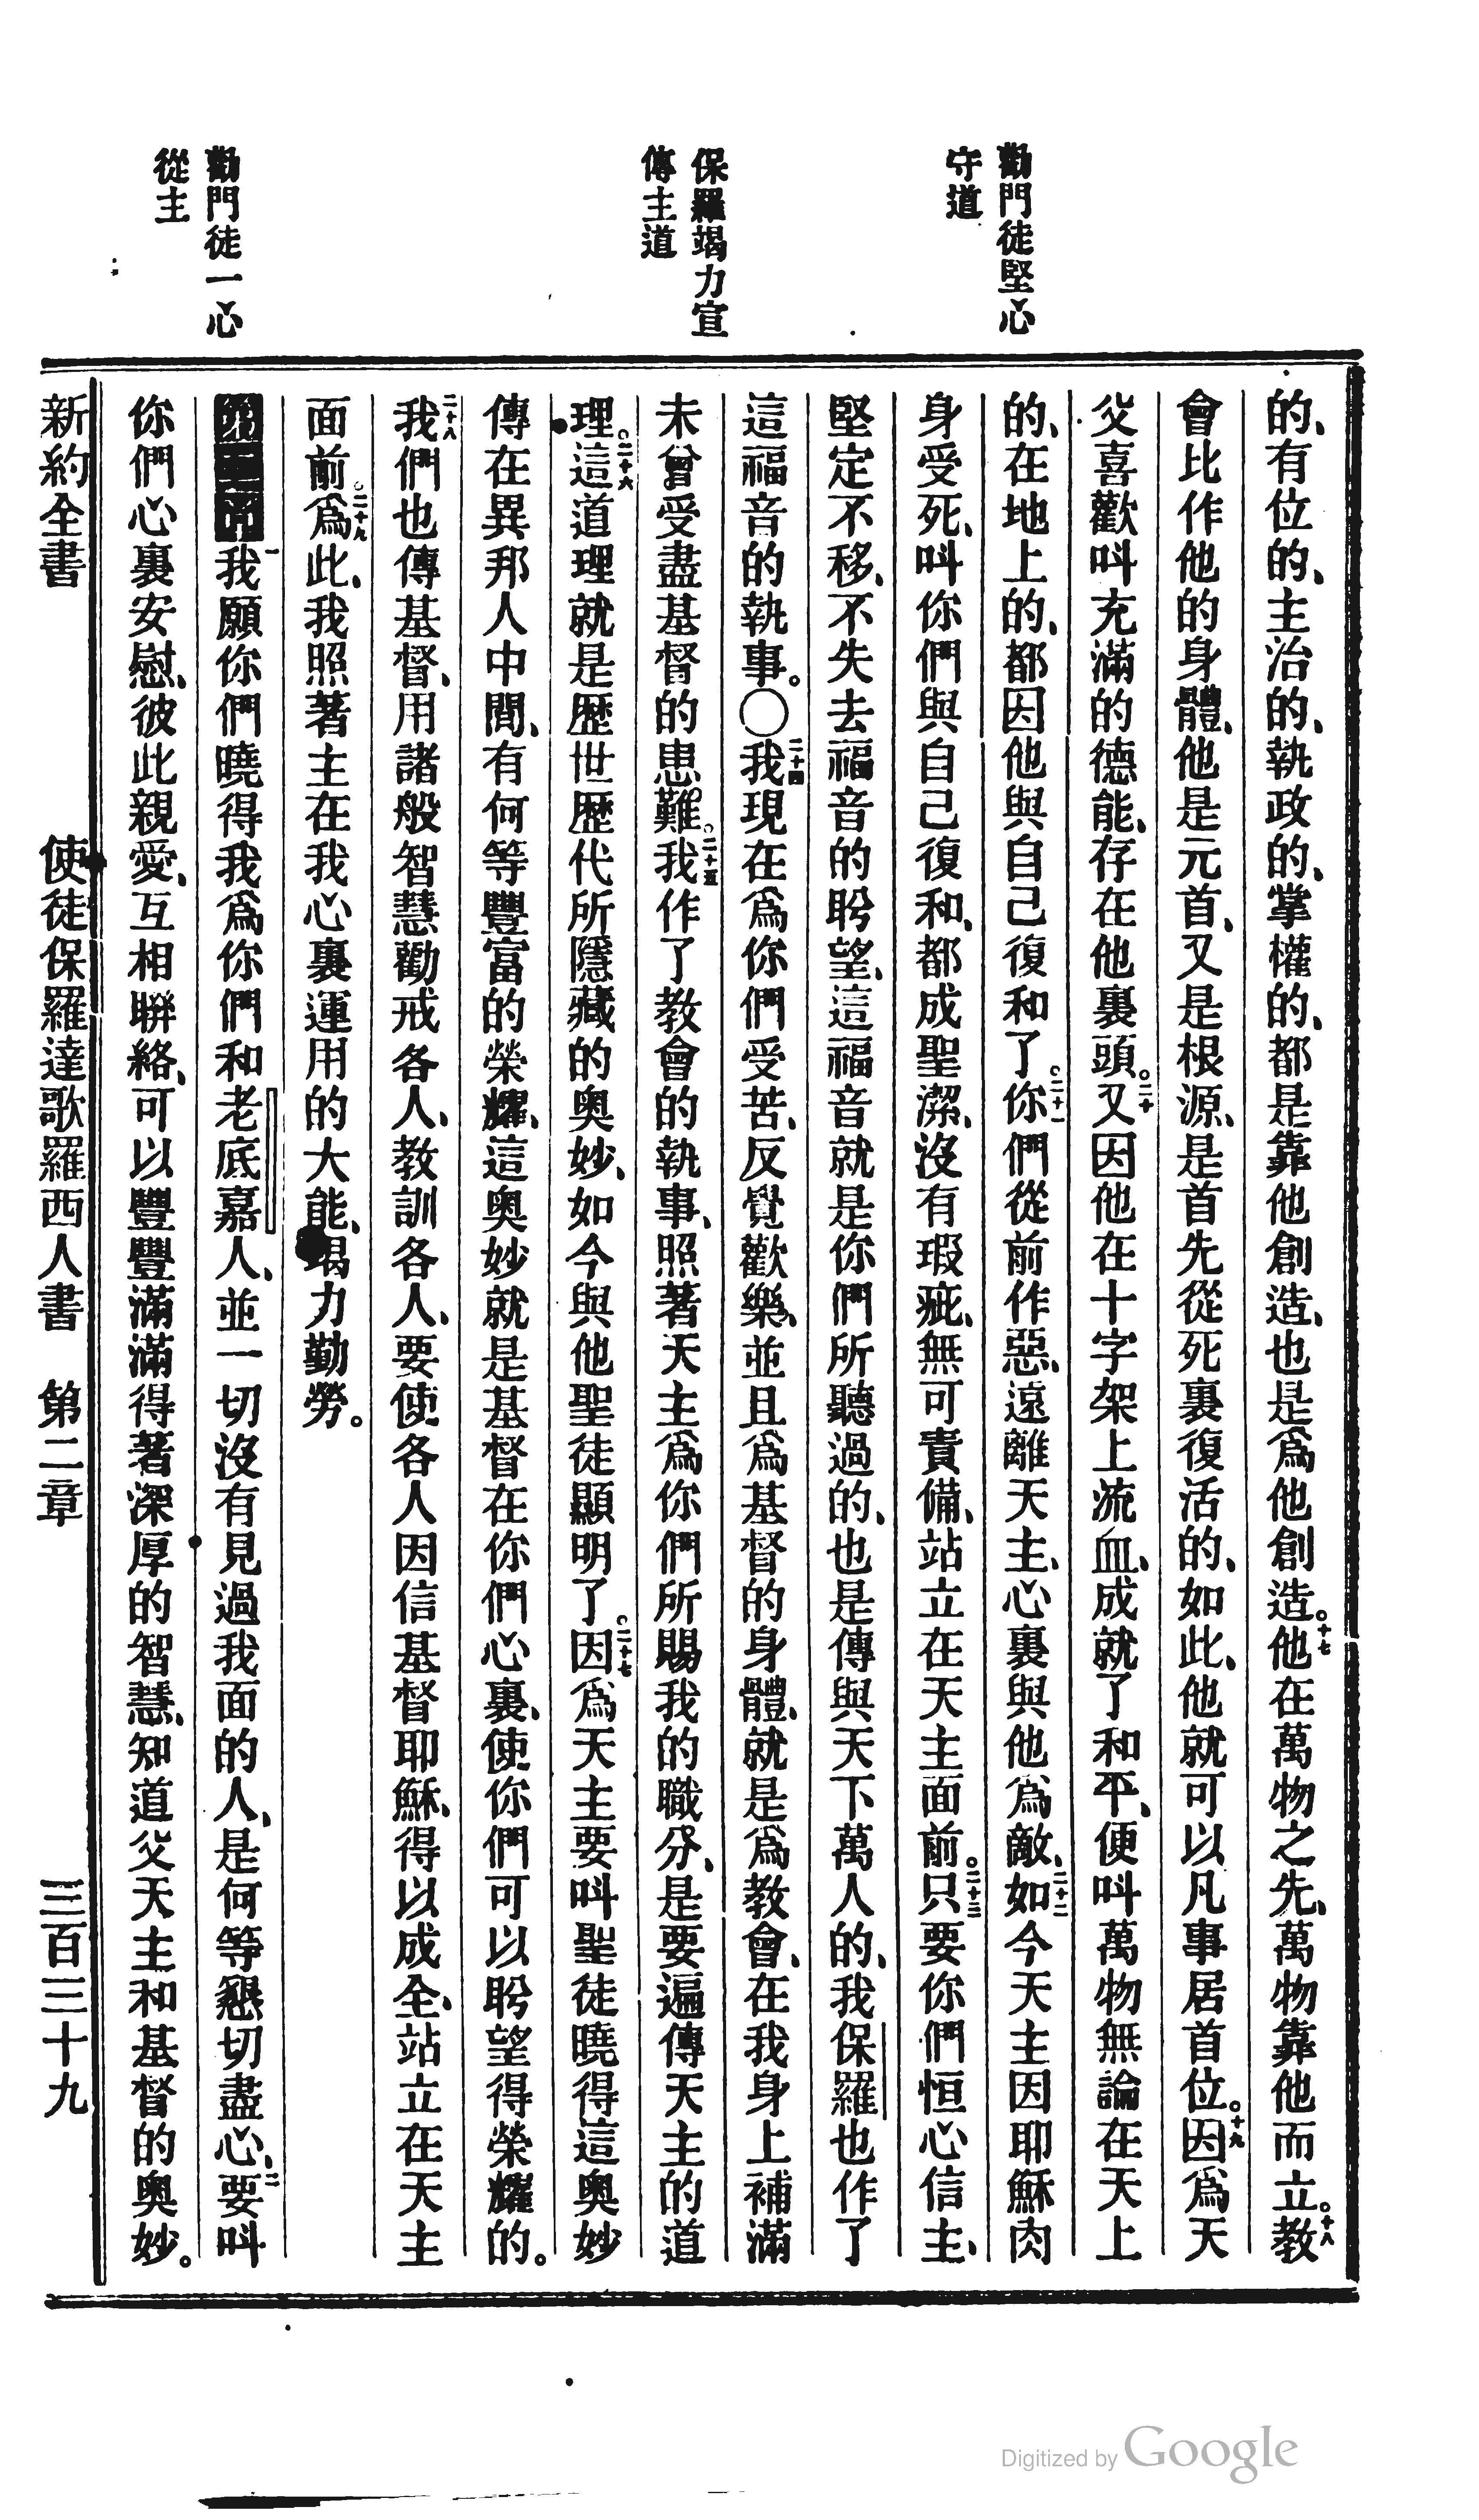 勸門徒堅心
守道
保羅竭力宣
傳主道
勸門徒一心
從主
的、有位的、主治的、執政的、掌權的、都是靠他創造、也是爲他創造。十七他在萬物之先、萬物靠他而立。十八教
會比作他的身體、他是元首、又是根源、是首先從死裏復活的、如此、他就可以凡事居首位。十九因爲天
父喜歡呌充滿的德能、存在他裏頭。二十又因他在十字架上流血、成就了和平、便呌萬物無論在天上
的、在地上的、都因他與自己復和了。二十一你們從前作惡、遠離天主、心裏與他爲敵、二十二如今天主因耶穌肉
身受死、呌你們與自己復和、都成聖潔、沒有瑕疵、無可責備、站立在天主面前。二十三只要你們恒心信主、
堅定不移、不失去福音的盼望、這福音就是你們所聽過的、也是傳與天下萬人的、我保羅也作了
這福音的執事。〇二十四我現在爲你們受苦、反覺歡樂、並且爲基督的身體、就是爲教會、在我身上補滿
未曾受盡基督的患難。二十五我作了教會的執事、照著天主爲你們所賜我的職分、是要遍傳天主的道
理。二十六這道理就是歷世歷代所隱藏的奧妙、如今與他聖徒顯明了。二十七因爲天主要呌聖徒曉得這奧妙
傳在異邦人中間、有何等豐富的榮耀、這奧妙就是基督在你們心裏、使你們可以盼望得榮耀的。
二十八我們也傳基督、用諸般智慧勸戒各人、教訓各人、要使各人因信基督耶穌、得以成全、站立在天主
面前。二十九爲此、我照著主在我心裏運用的大能、竭力勤勞。
一我願你們曉得我爲你們和老底嘉人、並一切沒有見過我面的人、是何等懇切盡心、二要呌
你們心裏安慰、彼此親愛、互相聯絡、可以豐豐滿滿得著深厚的智慧、知道父天主和基督的奧妙。
新約全書 使徒保羅達歌羅西人書 第二章 三百三十九
Digitized by Google